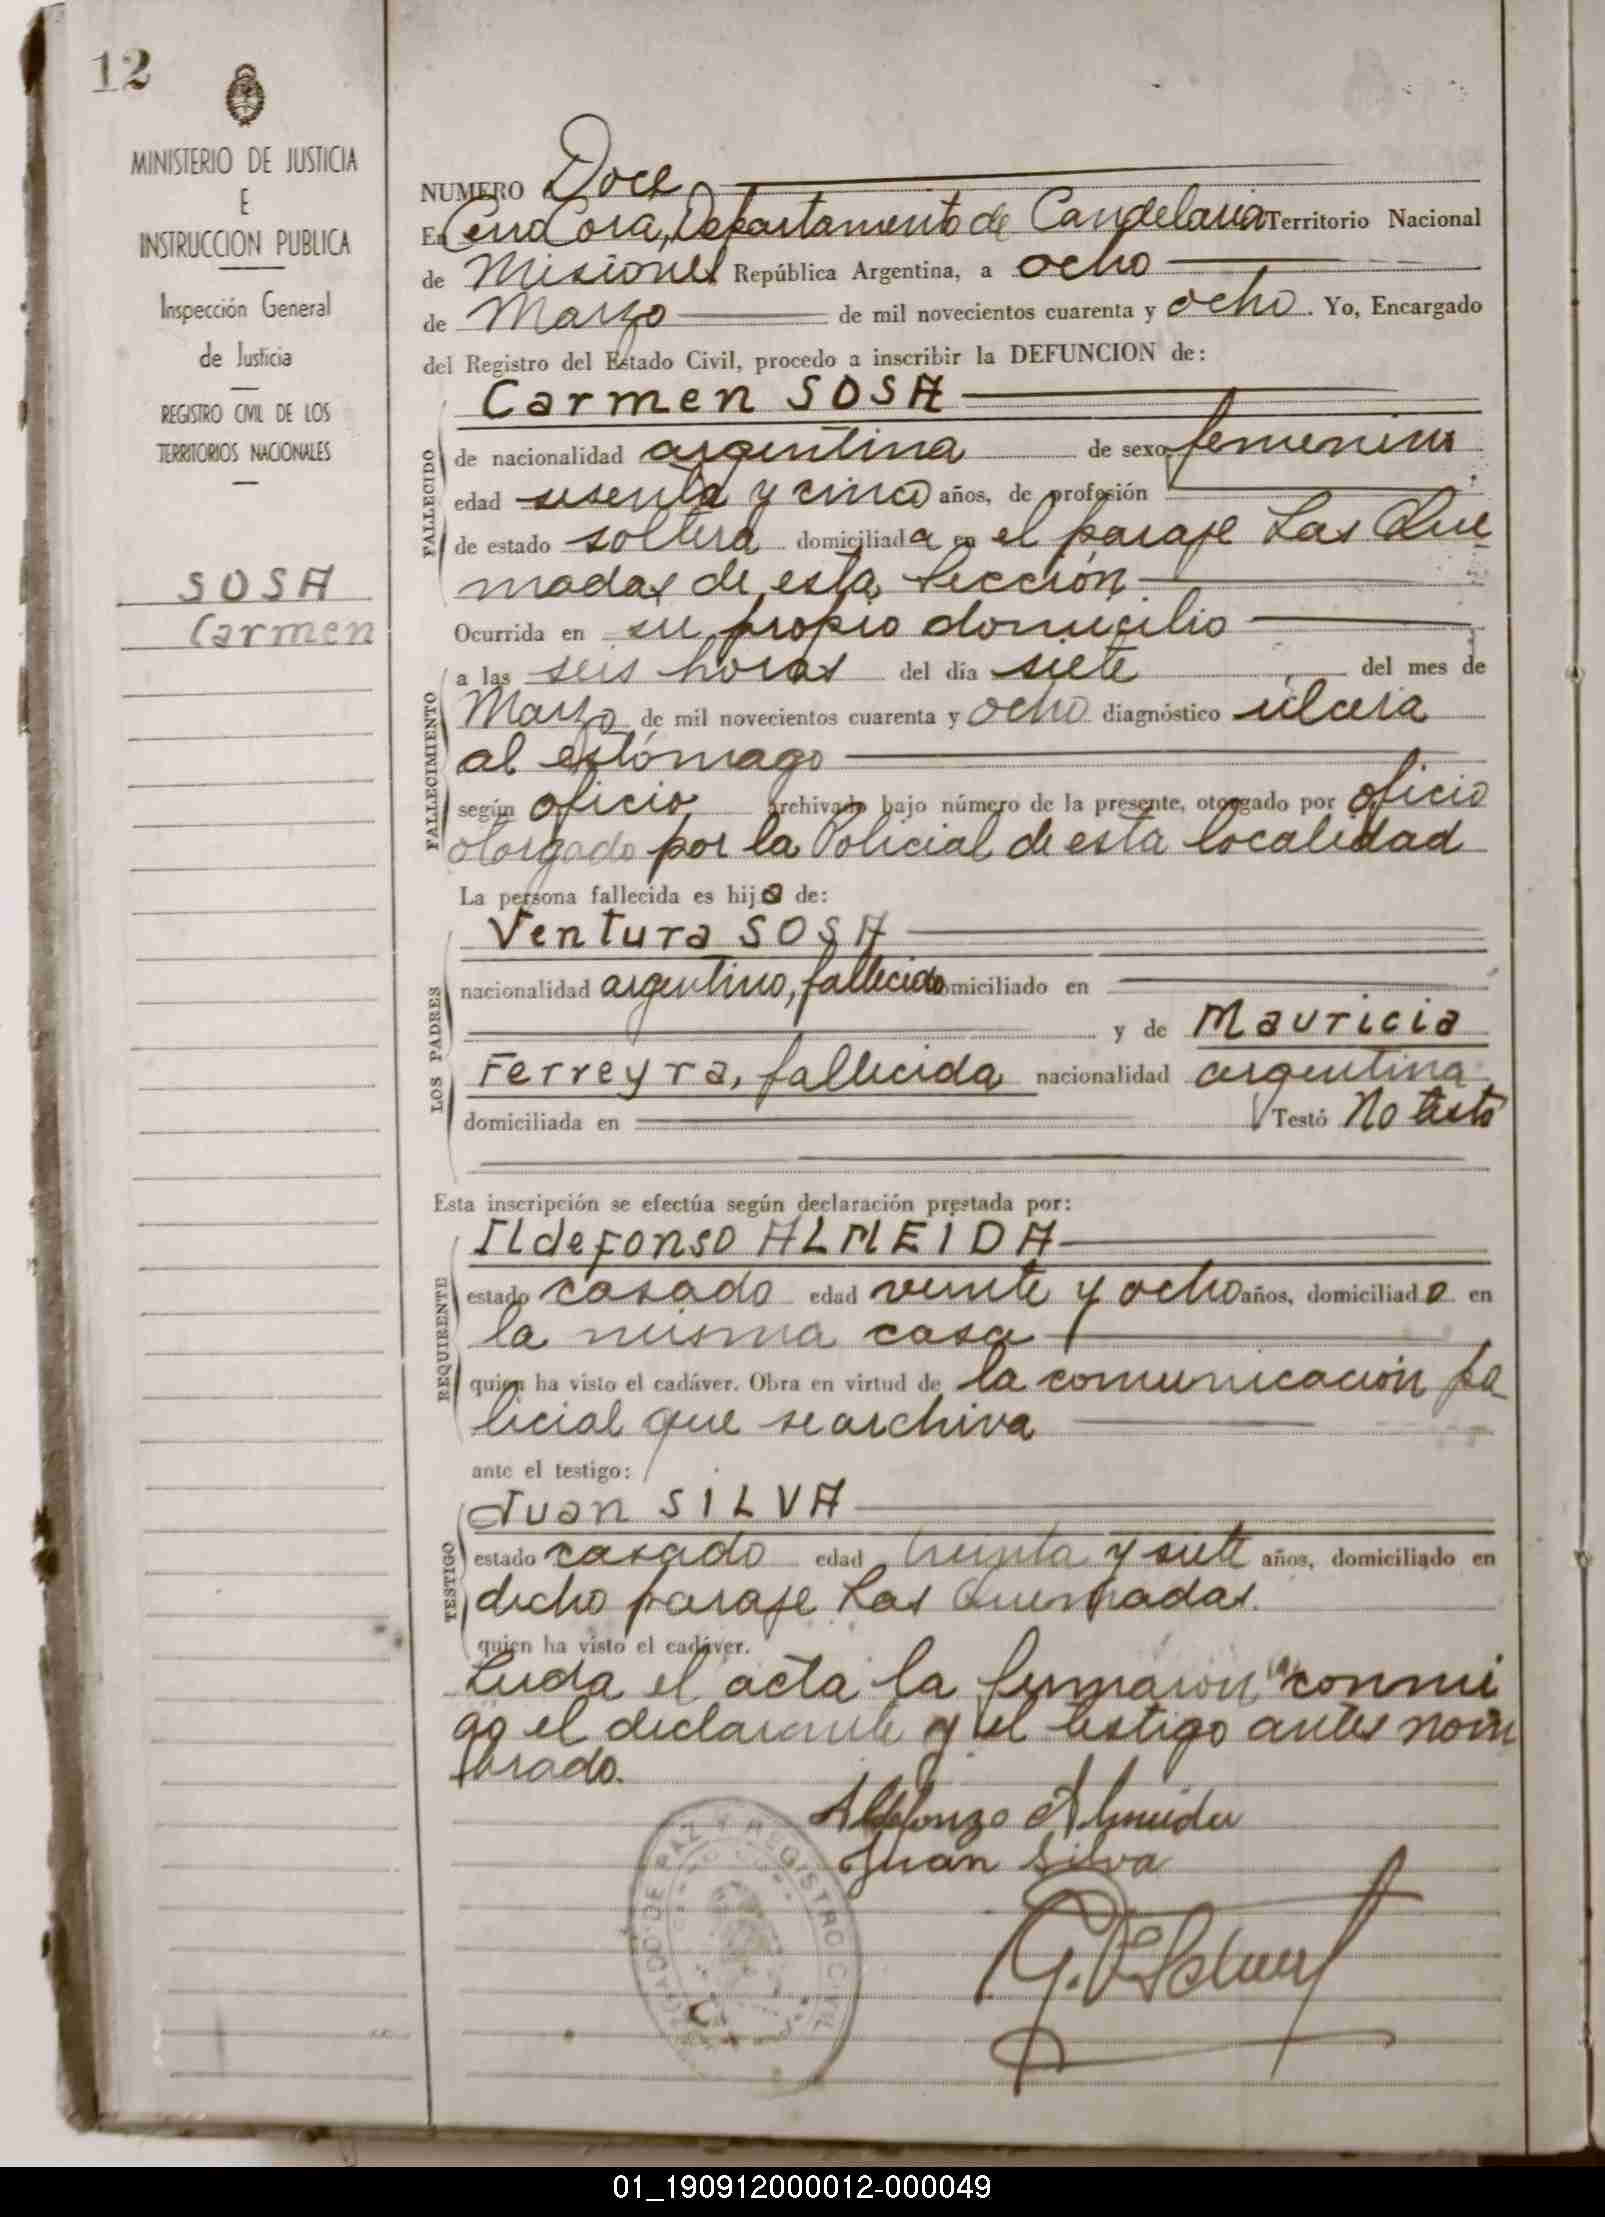 12
MINISTERIO DE JUSTICIA
E
INSTRUCCION PUBLICA
Inspección General
de Justicia
REGISTRO CIVIL DE LOS
TERRITORIOS NACIONALES
SOSA
Carmen
NUMERO Doce
En Cerro Cora, Departamento de Candelaria Territorio Nacional
de Misiones República Argentina, a ocho
de Marzo de mil novecientos cuarenta y ocho. Yo, Encargado
del Registro del Estado Civil, procedo a inscribir la DEFUNCION de:
FALLECIDO
Carmen SOSA
de nacionalidad argentina de sexo femenino
edad sesenta y cinco años, de profesión
de estado soltera domiciliada en el paraje Las Que
madas de esta Sección
Ocurrida en su propio domicilio
FALLECIMIENTO
a las seis horas del día siete del mes de
Marzo de mil novecientos cuarenta y ocho diagnóstico úlcera
al estómago
según oficio archivado bajo número de la presente, otorgado por oficio
otorgado por la Policial de esta localidad
La persona fallecida es hija de:
LOS PADRES
Ventura SOSA
nacionalidad argentino, fallecido domiciliado en
y de Mauricia
Ferreyra, fallecida nacionalidad argentina
domiciliada en Testó No testó
Esta inscripción se efectúa según declaración prestada por:
REQUIRENTE
Ildefonso ALMEIDA
estado casado edad veinte y ocho años, domiciliado en
la misma casa
quien ha visto el cadáver. Obra en virtud de la comunicación po
licial que se archiva
ante el testigo:
TESTIGO
Juan SILVA
estado casado edad treinta y siete años, domiciliado en
dicho paraje Las Quemadas.
quien ha visto el cadáver.
Leida el acta la firmaron conmi
go el declarante y el testigo antes nom
brado.
Ildefonzo Almeida
Juan Silva
JUZGADO DE PAZ Y REGISTRO CIVIL
01_190912000012-000049